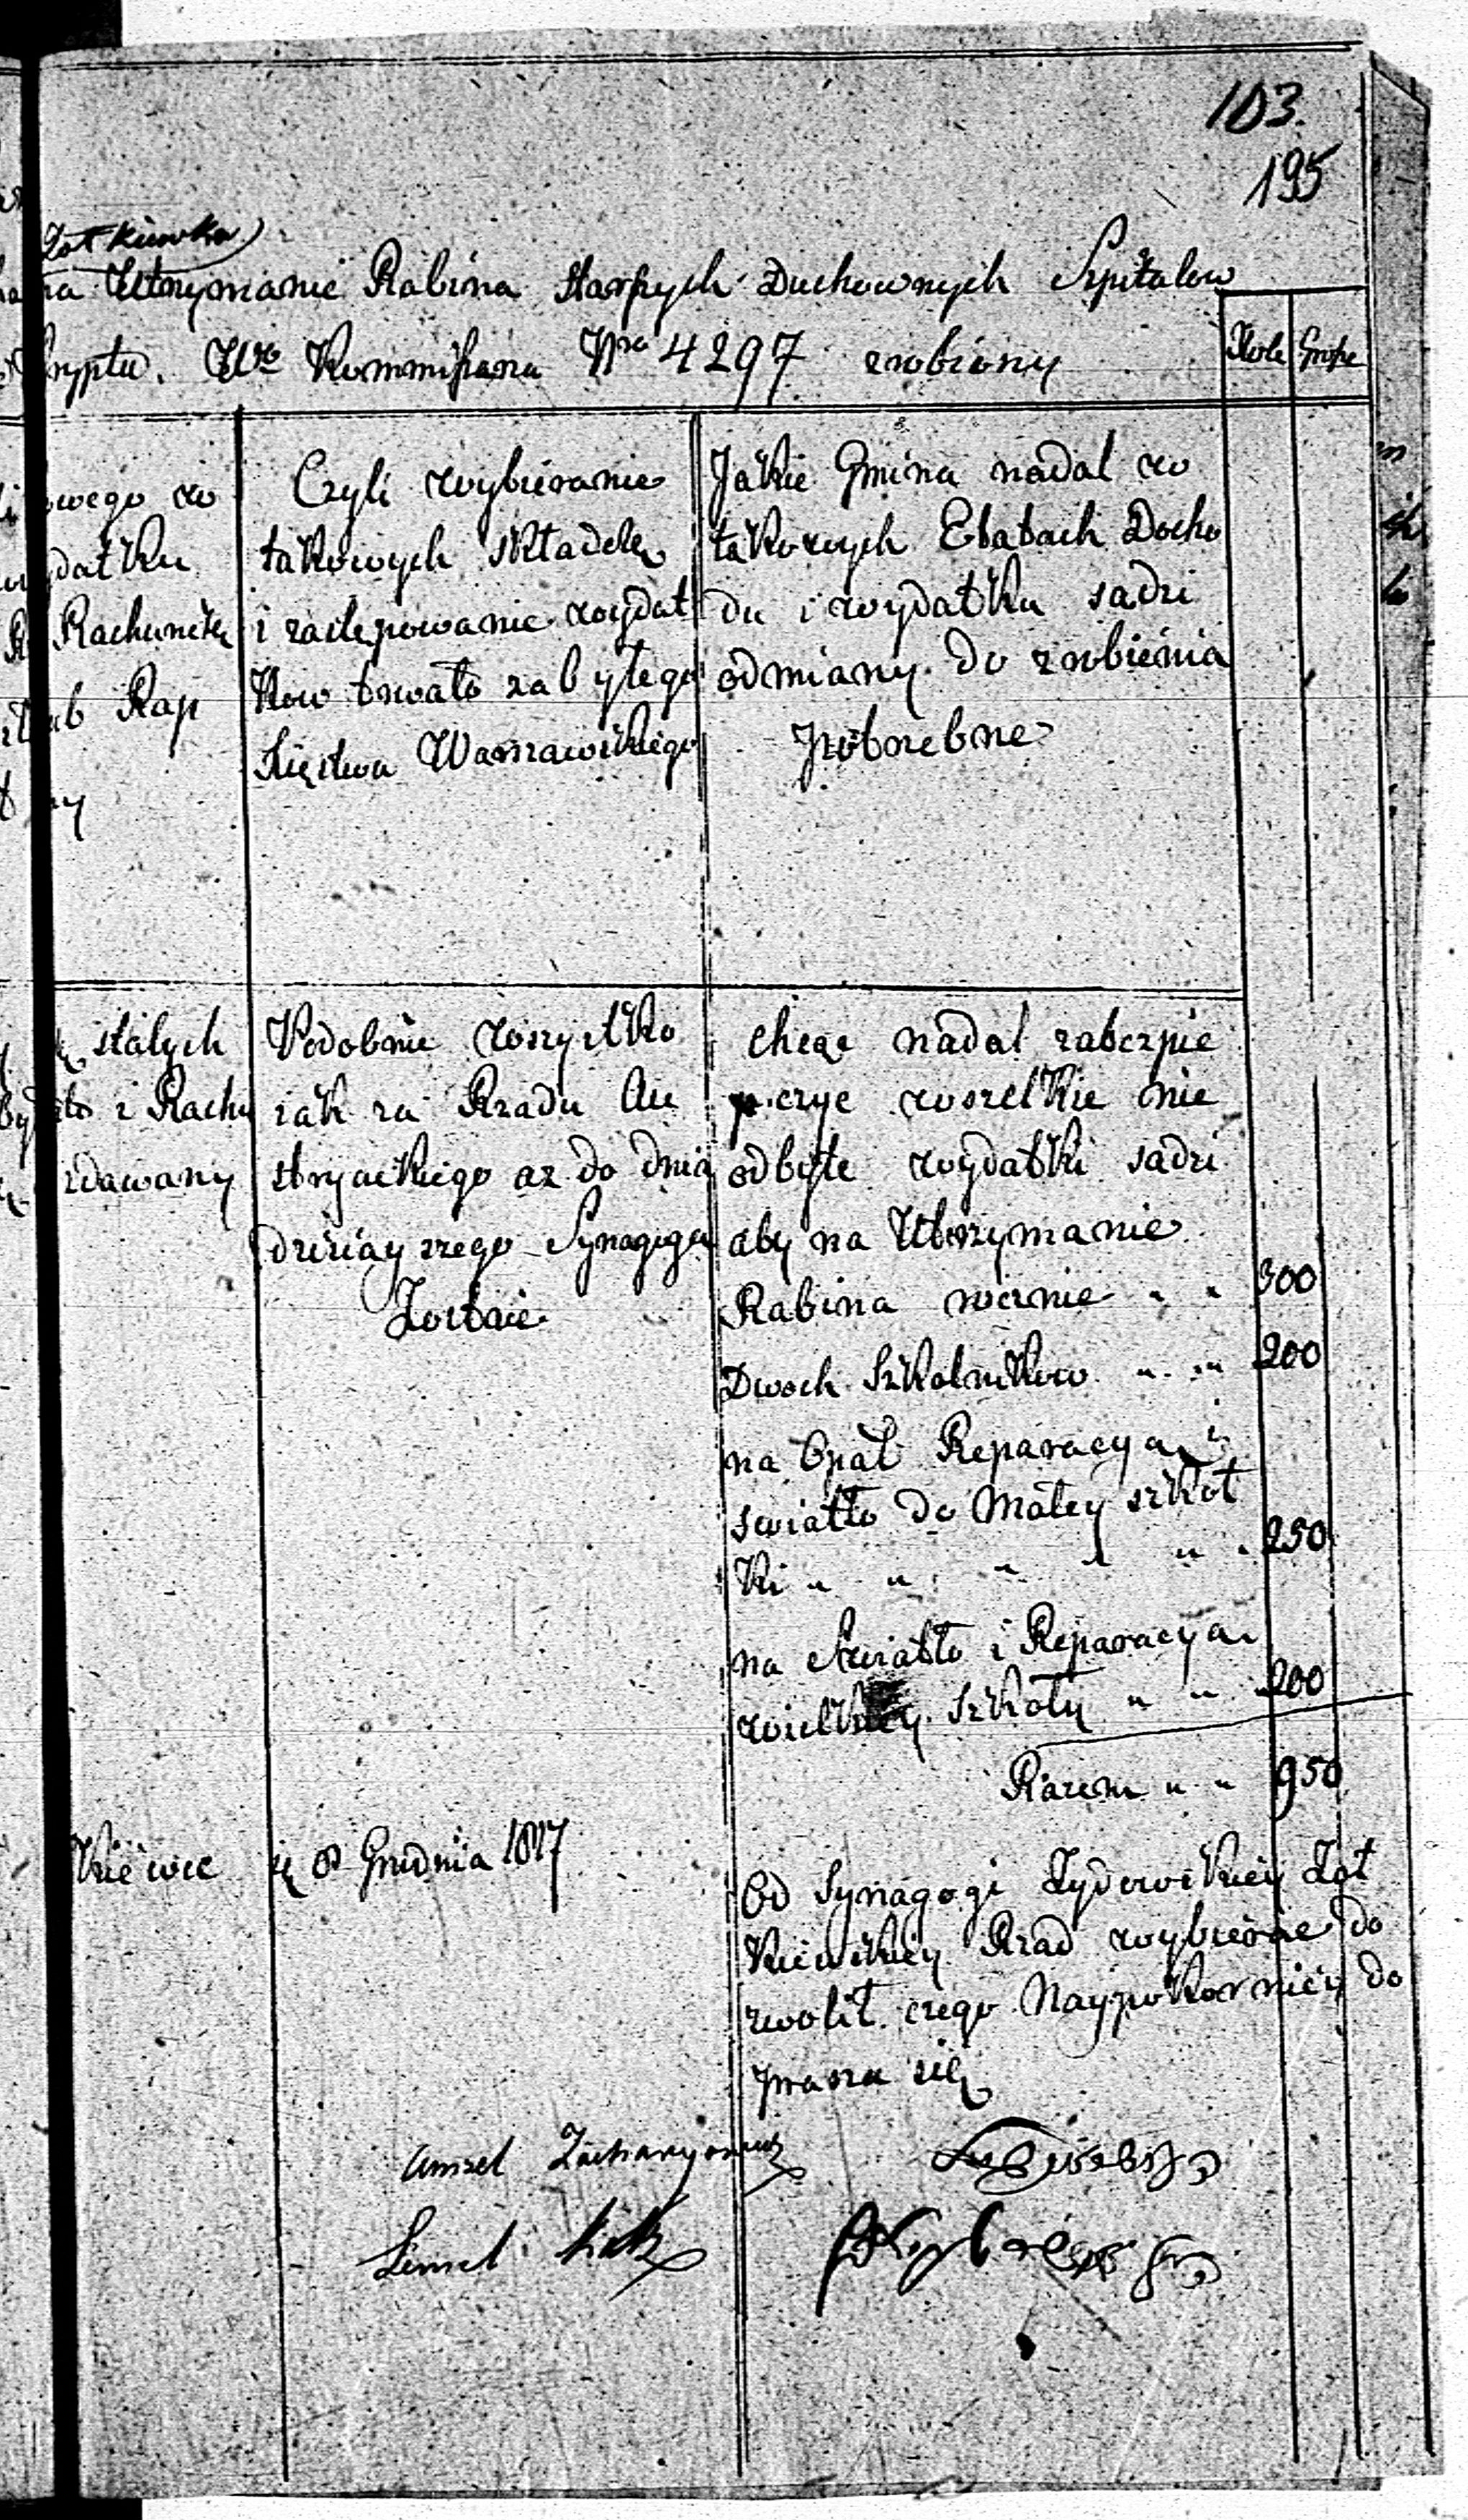 103.
195
Żołkiewka
na Utrzymanie Rabina starszych Duchownych Szpitalow
kryptu. Wo Kommissarza Nro 4297 zrobiony
Złote Grosze
owego w
datku
Rachunek
lub Rap
ny
Czyli wybieranie
takowych składek
i zastepowanie wydat
kow trwało za byłego
Xięstwa Warszawskiego
Jakie Gmina nadal w
takowych Etatach Docho
du i wydatku sadzi
odmiany do zrobienia
potrzebne
stałych
z Rachu
zdawany
Podobnie wszystko
iak za Rzadu Au
stryackiego az do dnia
dzisiayszego Synagoga
Zostaie
chcąc nadal zabezpie
czyc wszelkie nie
odbyte wydatki sadzi
aby na Utrzymanie
Rabina rocznie " " 300
Dwoch Szkolnikow " " 200
na Opał Reparacya i
swiatło do Małey szkoł
ki " " " " " 250
na Swiatło i Reparacya
wielkiey Szkoły " " 200
Razem " " 950
8 Grudnia 1817
Od Synagogi Zydowskiey Żoł
kiewskiey Rzad wybierac do
zwolił czego Naypokorniey do
prasza się
Amzel Zacharyowicz
Lemel